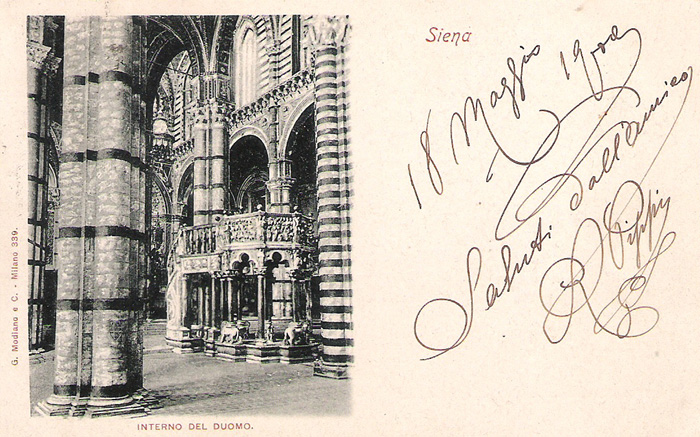 Siena
18 Maggio 1900
Saluti dall'amico
R Pippi
G. Modiano e C. - Milano 339.
INTERNO DEL DUOMO.